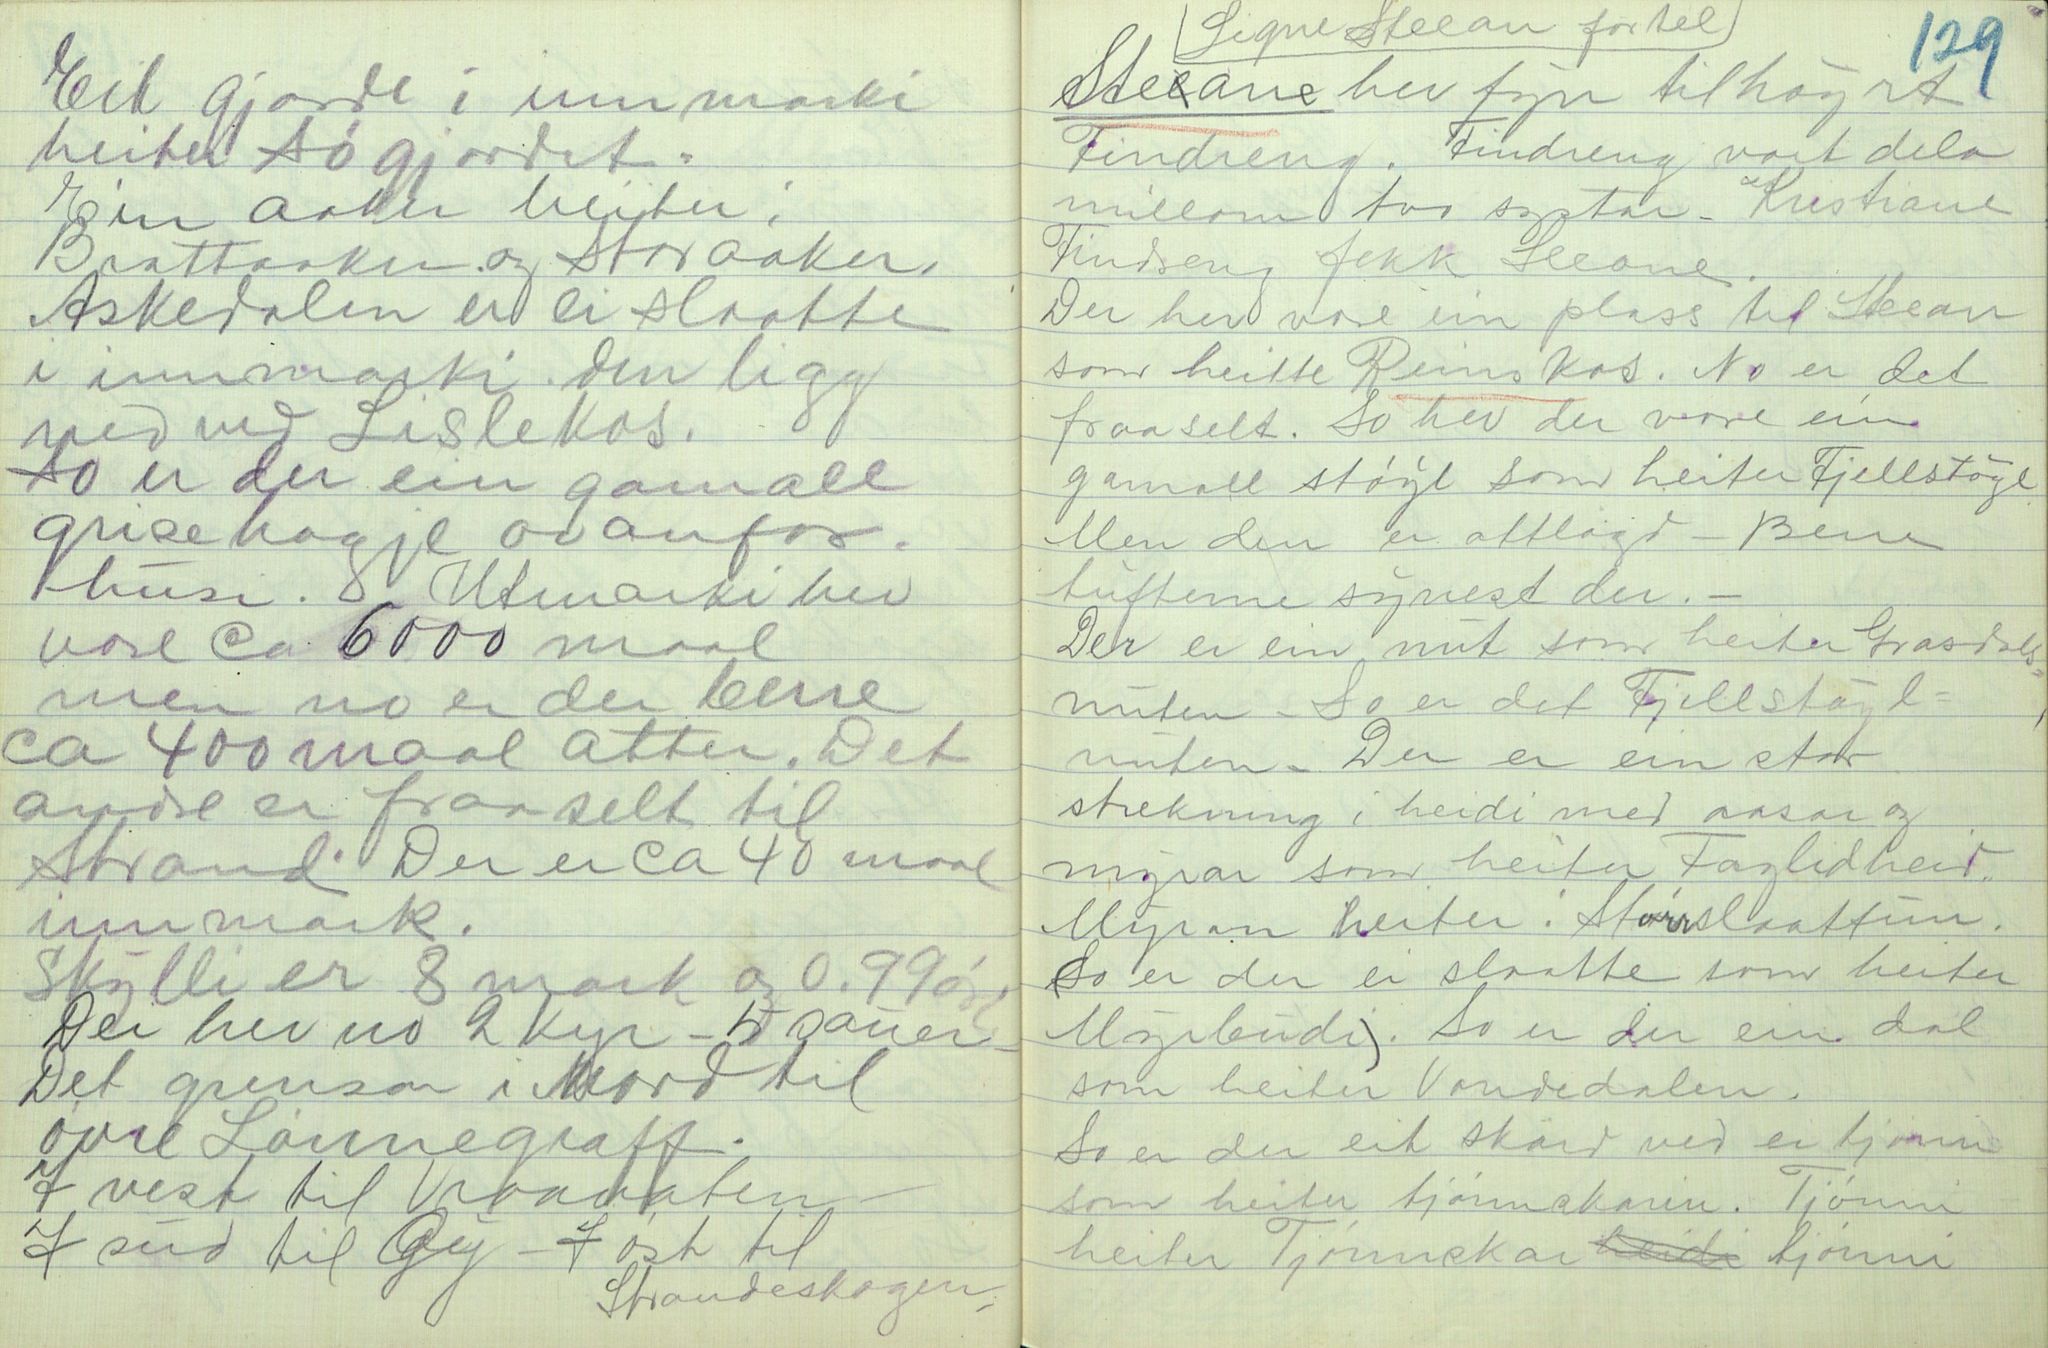 Eit gjorde i innmarki
heiter Sögjordet.
Ein aaker heiter:
Brattaaker og Storaaker.
Askedalen er ei slaatte
i innmarki. den ligg
ned ved Lislekos.
So er der ein gamall
grisehagje ovanfor
husi. Utmarki hev
vore Ca 6000 maal
men no er der berre
ca 400 maal atter. Det
andre er fraaselt til
Strand. Der er ca 40 maal
innmark.
Skylli er 8 mark og 0.99 öre
Dei hev no 2 kyr - 5 sauer -
Det grensar i Nord til
övre Lönnegraff.
I vest til Vraavaten -
I sud til Gry - I öst til
Strandeskogen -
Signe Steean fortel
129
Steeane hev fyn tilhöyrt
Findreng. Findreng vart dela
millom tvo systar - Kristiane
Findreng fekk Steeane.
Der hev vore ein plass til Steean
som heitte Reinskos. No er det
fraaselt. So hev der vore ein
gamall stöyl som heiter Fjellstöyl
Men den er attlagd - Berre
tufterne synest der. -
Der er ein nut som heiter Grasdals-
nuten - So er det Fjellstöyl=
nuten - Der er ein stor
strekning i heidi med aasar og
myrar som heiter Faglidheid.
Myran heiter: Störrslaattun.
So er der ei slaatte som heiter
Myrbudi). So er der ein dal
som heiter Vondedalen.
So er der eit skard ved ei tjönn
som heiter tjönnskarin. Tjönni
heiter Tjönnskar heidi tjönni